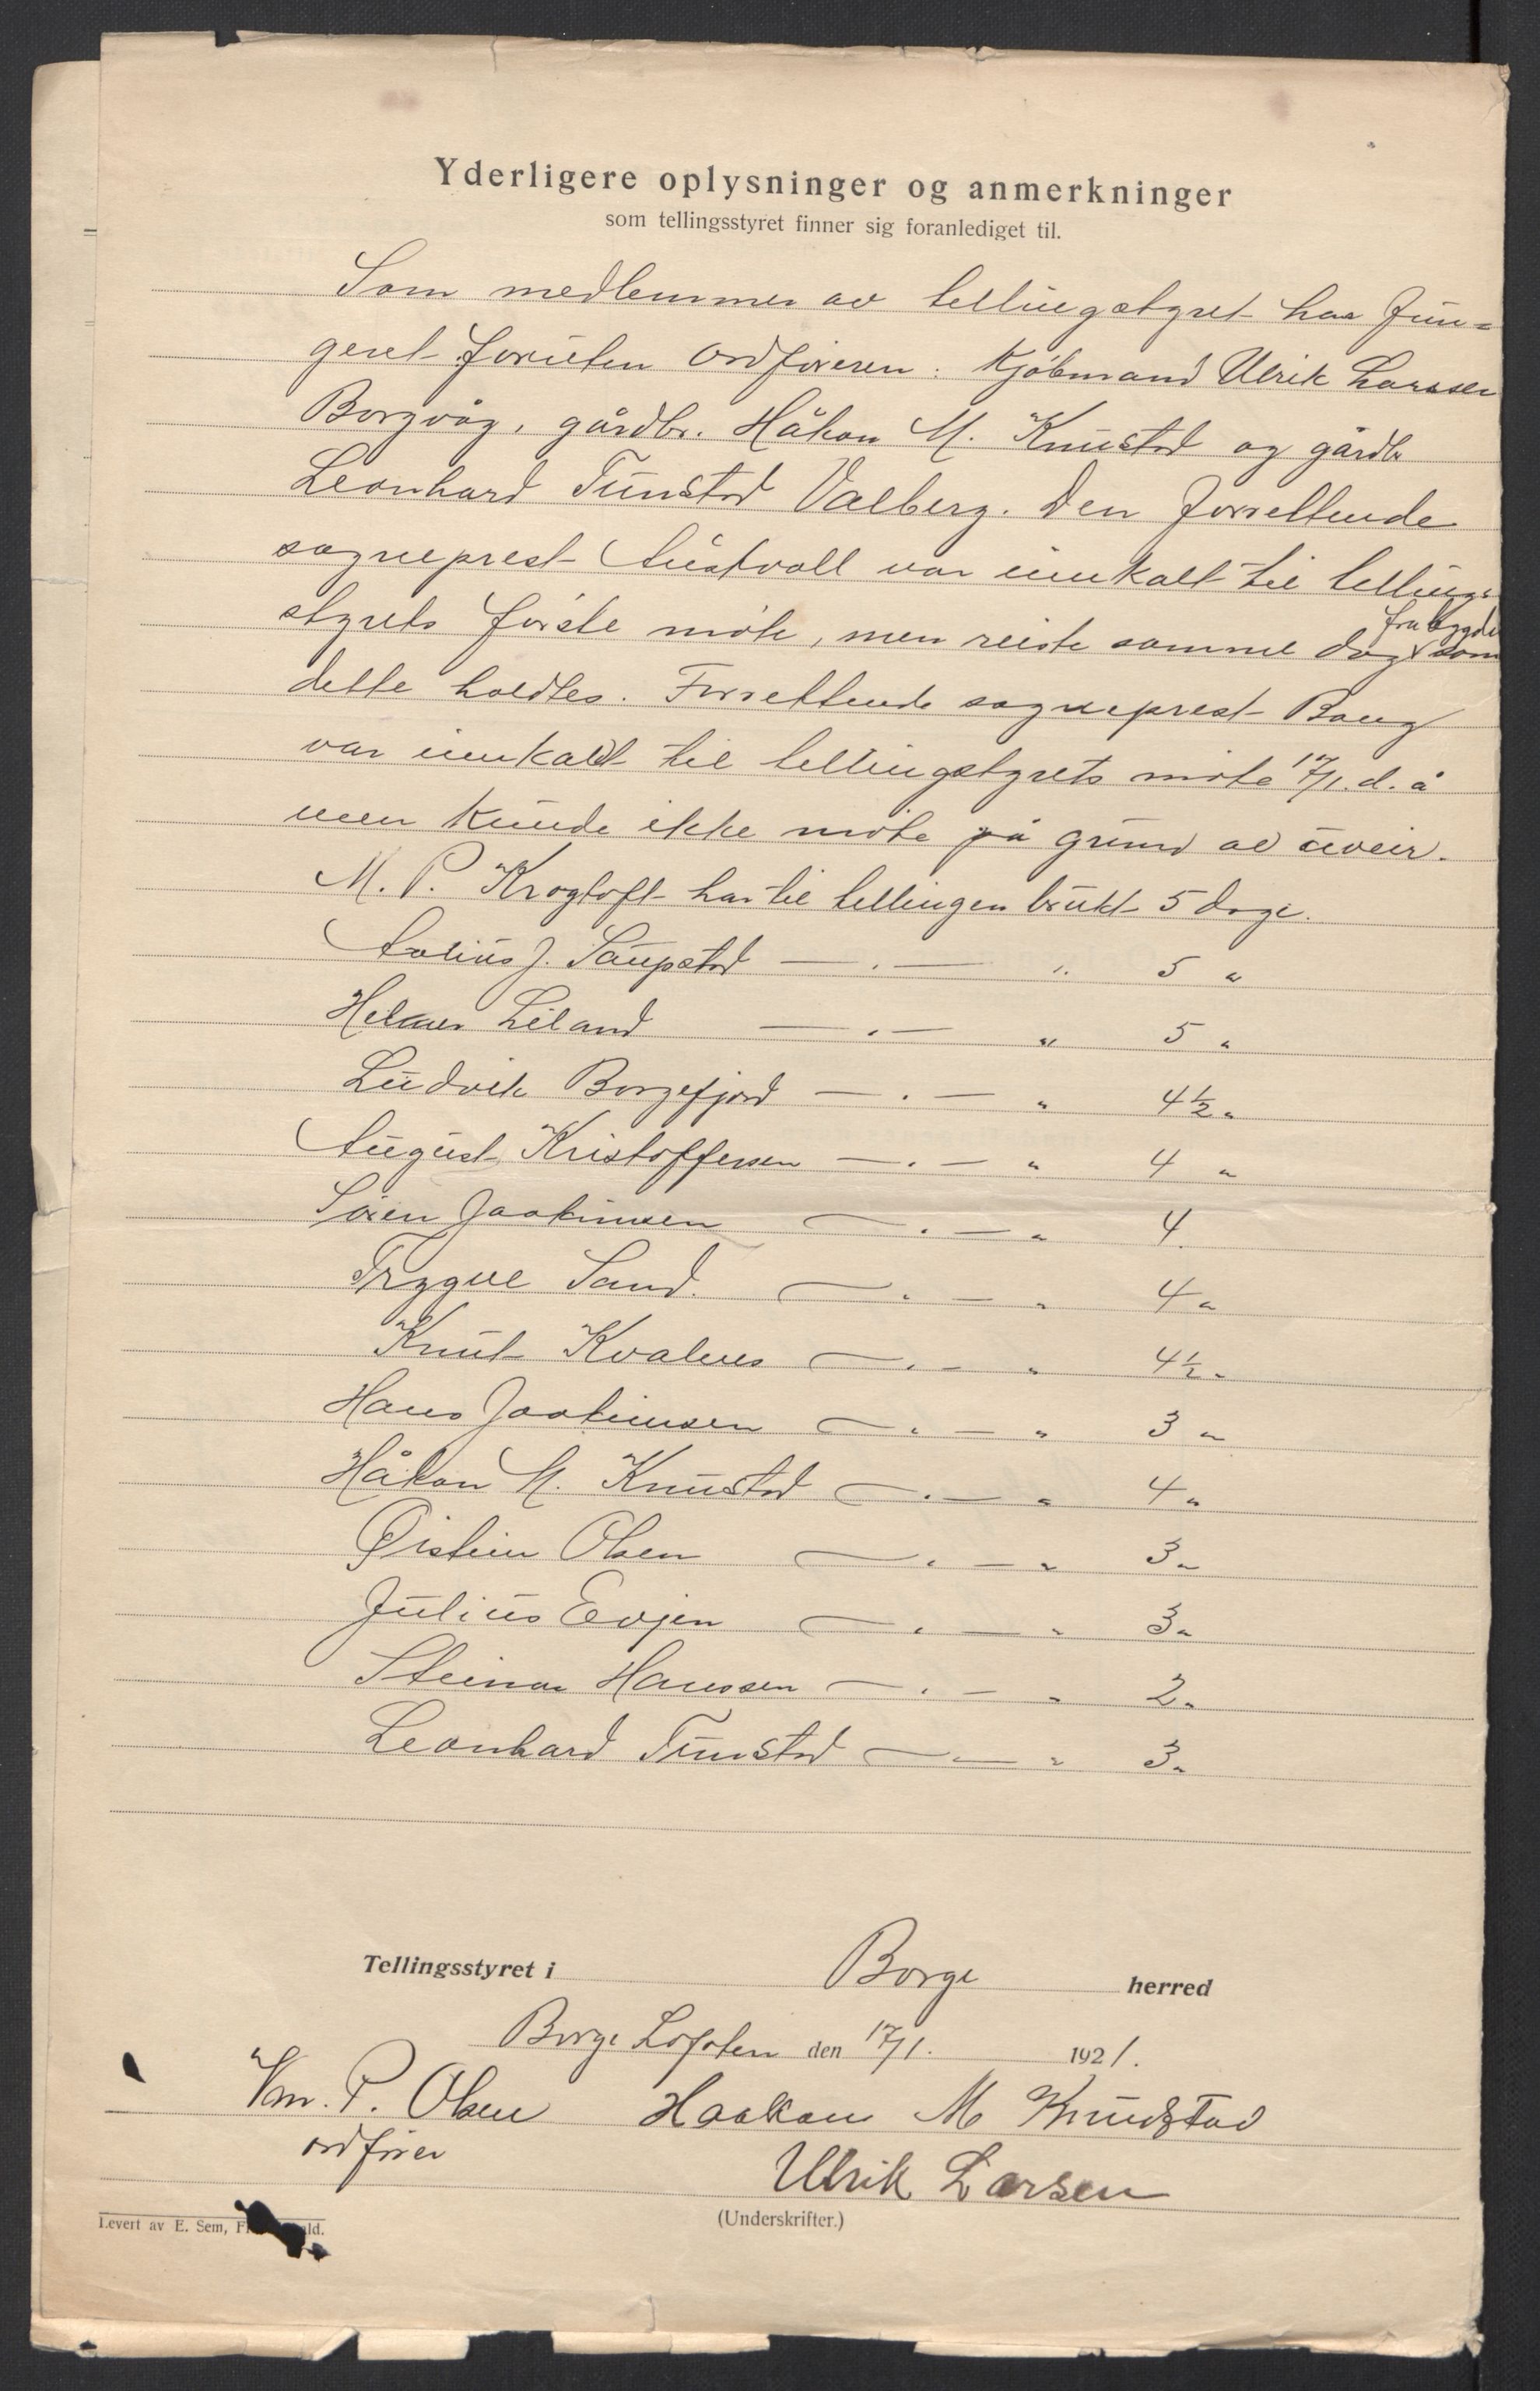 Yderligere oplysninger og anmerkninger
som tellingsstyret finner sig foranlediget til.
Som medlemmer av tellingsstyret har fun-
geret foruten ordføreren: Kjøbmand Ulrik Larssen
Borgvåg, gårdbr. Håkon M. Knustad og gårdb
Leonhard Tunstad Valberg. Den forrettende
sogneprest Austvoll var innkalt til tellings-
fra bygden
styrets første møte, men reiste samme dag som
dette holdtes. Forrettende sogneprest Bang
var innkaldt til tellingstyrets møte 17/1. d. å
men kunde ikke møte på grund av uveir.
M. P. Krogtoft har til tellingen brukt 5 dage.
J. Saupstad — . — „ 5 „
Helmer Liland — . — „ 5 „
Ludvik Borgefjord — . — „ 4½ „
August Kristoffersen — . — „ 4 „
Søren Joakimsen — . — „ 4.
Trygve Sand. — . — „ 4 „
Knut Kvalnes — . — „ 4½ „
Hans Joakimsen — . — „ 3 „
Håkon M. Knustad — . — „ 4 „
Øistein Olsen — . — „ 3 „
Julius Evjen — . — „ 3 „
Steinar Hanssen — . — „ 2 „
Leonhard Tunstad — — „ 3 „
Tellingsstyret i Borge herred
Borge Lofoten den 17/1. 1921.
Wm. P. Olsen Haakon M Knudstad
ordfører
Ulrik Larsen
(Underskrifter.)
Levert av E. Sem,